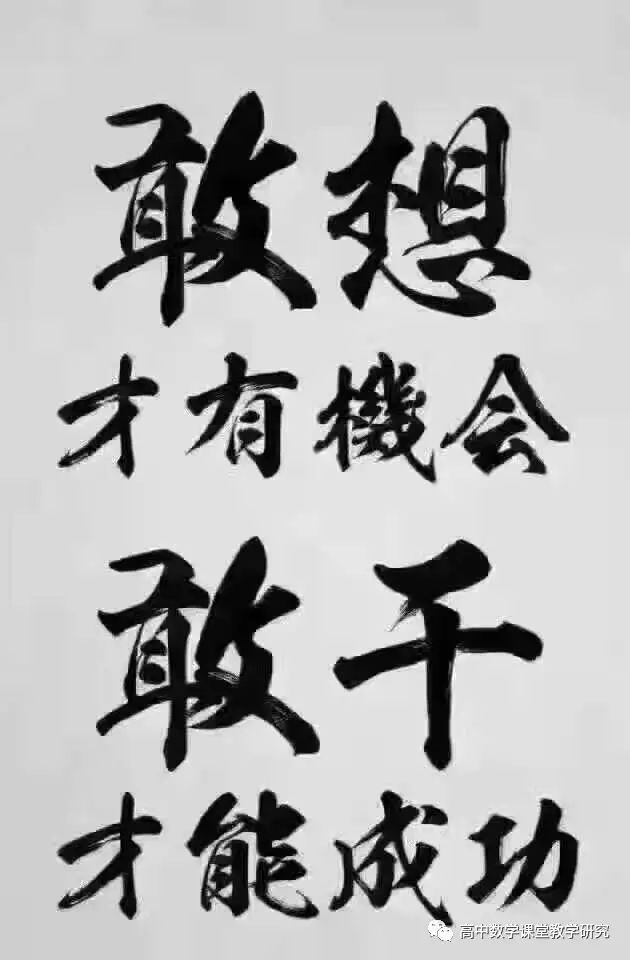 敢想
才有機会
敢干
才能成功
高中数学课堂教学研究